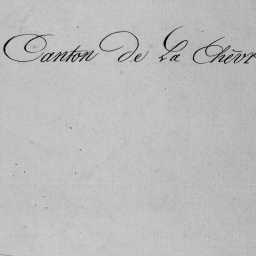 Canton de La Chêvr